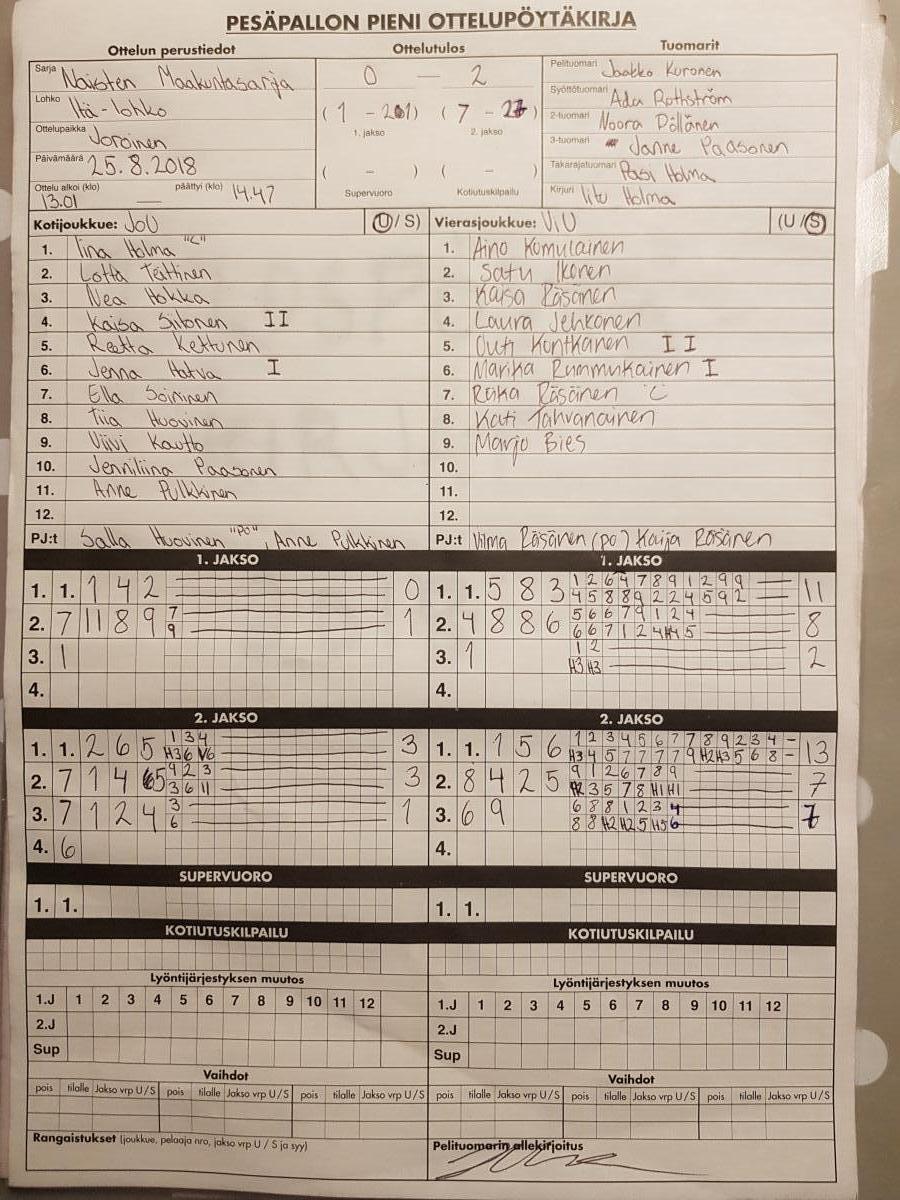 PESÄPALLON PIENI OTTELUPÖYTÄKIRJA
Ottelun perustiedot Ottelutulos Tuomarit
Sarja Naisten Maakuntasarja
Lohko Itä-lohko
Ottelupaikka Joroinen
Päivämäärä 25.8.2018
Ottelu alkoi (klo) 13.01 — päättyi (klo) 14.47
0 — 2
(1 - 21) (7 - 27)
1. jakso 2. jakso
( - ) ( - )
Supervuoro Kotiutuskilpailu
Pelituomari Jaakko Kuronen
Syöttötuomari Ada Rothström
2-tuomari Noora Pöllänen
3-tuomari Janne Paasonen
Takarajatuomari Pasi Holma
Kirjuri Iitu Holma
Kotijoukkue: JoU (U/S) Vierasjoukkue: ViU (U/S)
1. Iina Holma "C" 1. Aino Komulainen
2. Lotta Teittinen 2. Satu Ikonen
3. Nea Hokka 3. Kaisa Räsänen
4. Kaisa Siitonen II 4. Laura Jehkonen
5. Reetta Kettunen 5. Outi Kontkanen II
6. Jenna Hatva I 6. Marika Rummukainen I
7. Ella Soininen 7. Riika Räsänen "C
8. Tiia Huovinen 8. Kati Tahvanainen
9. Viivi Kautto 9. Marjo Bies
10. Jenniliina Paasonen 10.
11. Anne Pulkkinen 11.
12. 12.
PJ:t Salla Huovinen "PO", Anne Pulkkinen PJ:t Vilma Räsänen (PO) Kaija Räsänen
1. JAKSO 1. JAKSO
1. 1. 1 4 2 0 1. 1. 5 8 3 1 2 6 4 7 8 9 1 2 9 9 11
4 5 8 8 9 2 2 4 5 9 2
2. 7 11 8 9 7 1 2. 4 8 8 6 5 6 6 7 9 1 2 4 8
9 6 6 7 1 2 4 H4 5
3. 1 3. 1 1 2 2
H3 H3
4. 4.
2. JAKSO 2. JAKSO
1. 1. 2 6 5 1 3 4 3 1. 1. 1 5 6 1 2 3 4 5 6 7 7 8 9 2 3 4 - 13
H3 6 V6 H3 4 5 7 7 7 7 9 H2 H3 5 6 8 -
2. 7 1 4 5 9 2 3 3 2. 8 4 2 5 9 1 2 6 7 8 9 7
3 6 11 3 5 7 8 H1 H1
3. 7 1 2 4 3 1 3. 6 9 6 8 8 1 2 3 4 7
6 8 8 H2 H2 5 H5 6
4. 6 4.
SUPERVUORO SUPERVUORO
1. 1. 1. 1.
KOTIUTUSKILPAILU KOTIUTUSKILPAILU
Lyöntijärjestyksen muutos Lyöntijärjestyksen muutos
1.J 1 2 3 4 5 6 7 8 9 10 11 12 1.J 1 2 3 4 5 6 7 8 9 10 11 12
2.J 2.J
Sup Sup
Vaihdot Vaihdot
pois tilalle Jakso vrp U/S pois tilalle Jakso vrp U/S pois tilalle Jakso vrp U/S pois tilalle Jakso vrp U/S pois tilalle Jakso vrp U/S pois tilalle Jakso vrp U/S
Rangaistukset (joukkue, pelaaja nro, jakso vrp U / S ja syy) Pelituomarin allekirjoitus